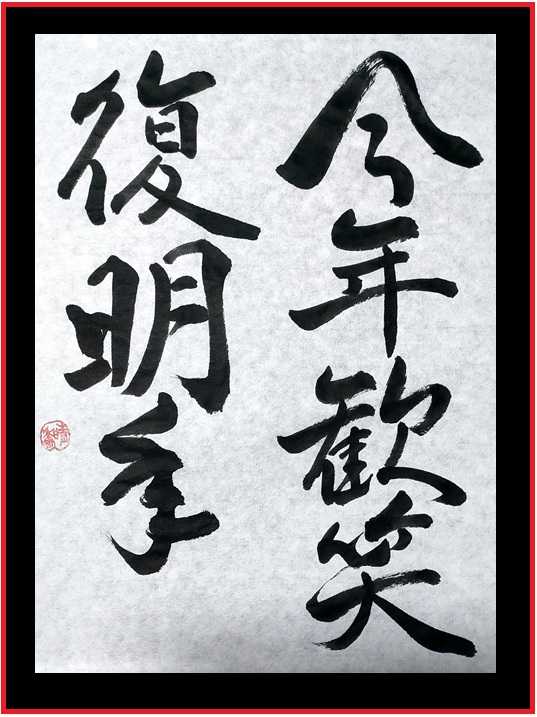 今年歓笑
復明年